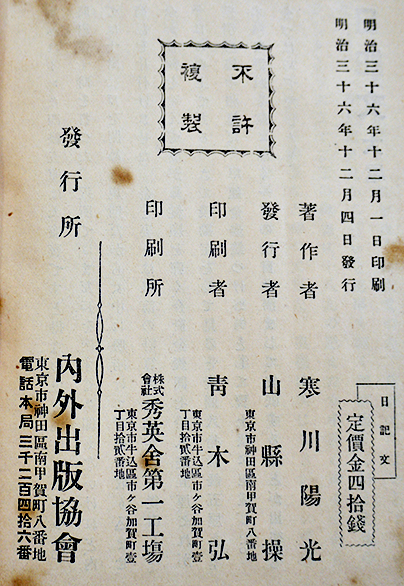 明治三十六年十二月一日印刷
明治三十六年十二月四日發行
不許
複製
日記文
定價金四拾錢
著作者 寒川陽光
發行者 山縣操
東京市神田區南甲賀町八番地
印刷者 青木弘
東京市牛込區市ヶ谷加賀町壹
丁目拾貳番地
印刷所 株式會社 秀英舍第一工塲
東京市牛込區市ヶ谷加賀町壹
丁目拾貳番地
發行所
內外出版協會
東京市神田區南甲賀町八番地
電話本局三千二百四拾六番